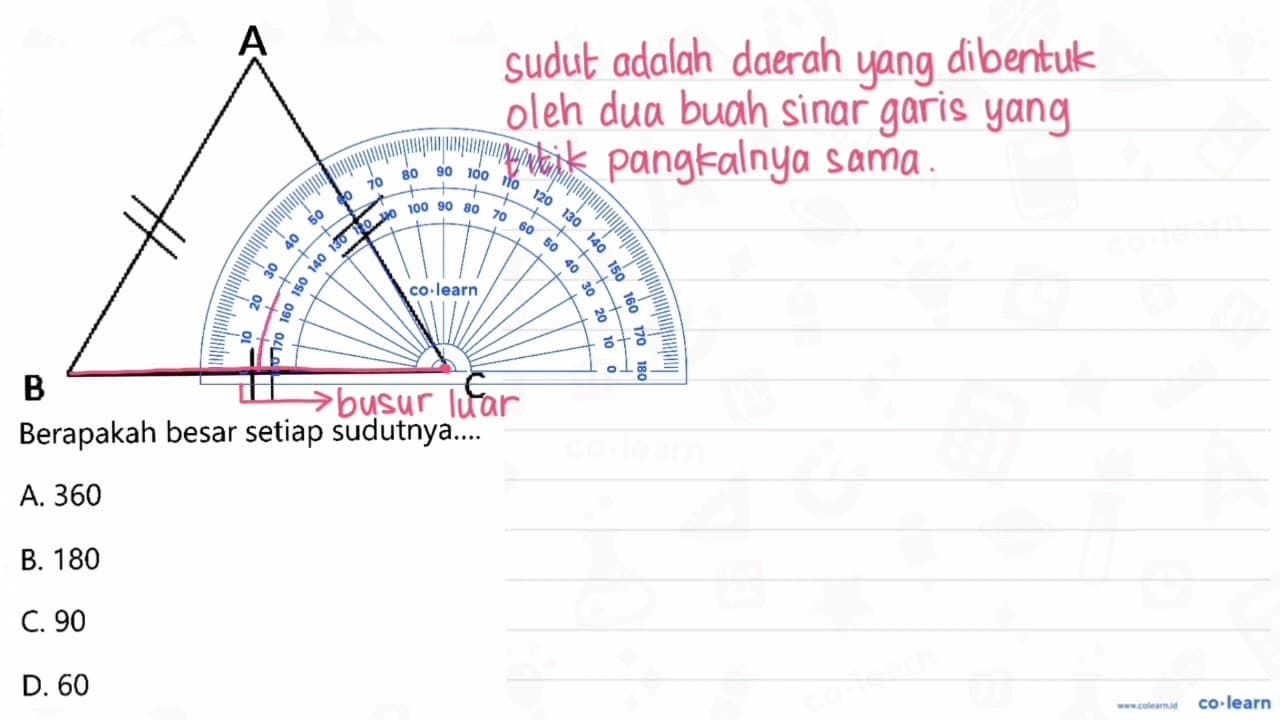 A
sudut adalah daerah yang dibentuk
oleh dua buah sinar garis yang
titik pangkalnya sama.
10 20 30 40 50 60 70 80 90 100 110 120 130 140 150 160 170 180
170 160 150 140 130 120 110 100 90 80 70 60 50 40 30 20 10 0
co·learn
B
C
busur luar
Berapakah besar setiap sudutnya....
A. 360
B. 180
C. 90
D. 60
www.colearn.id co·learn